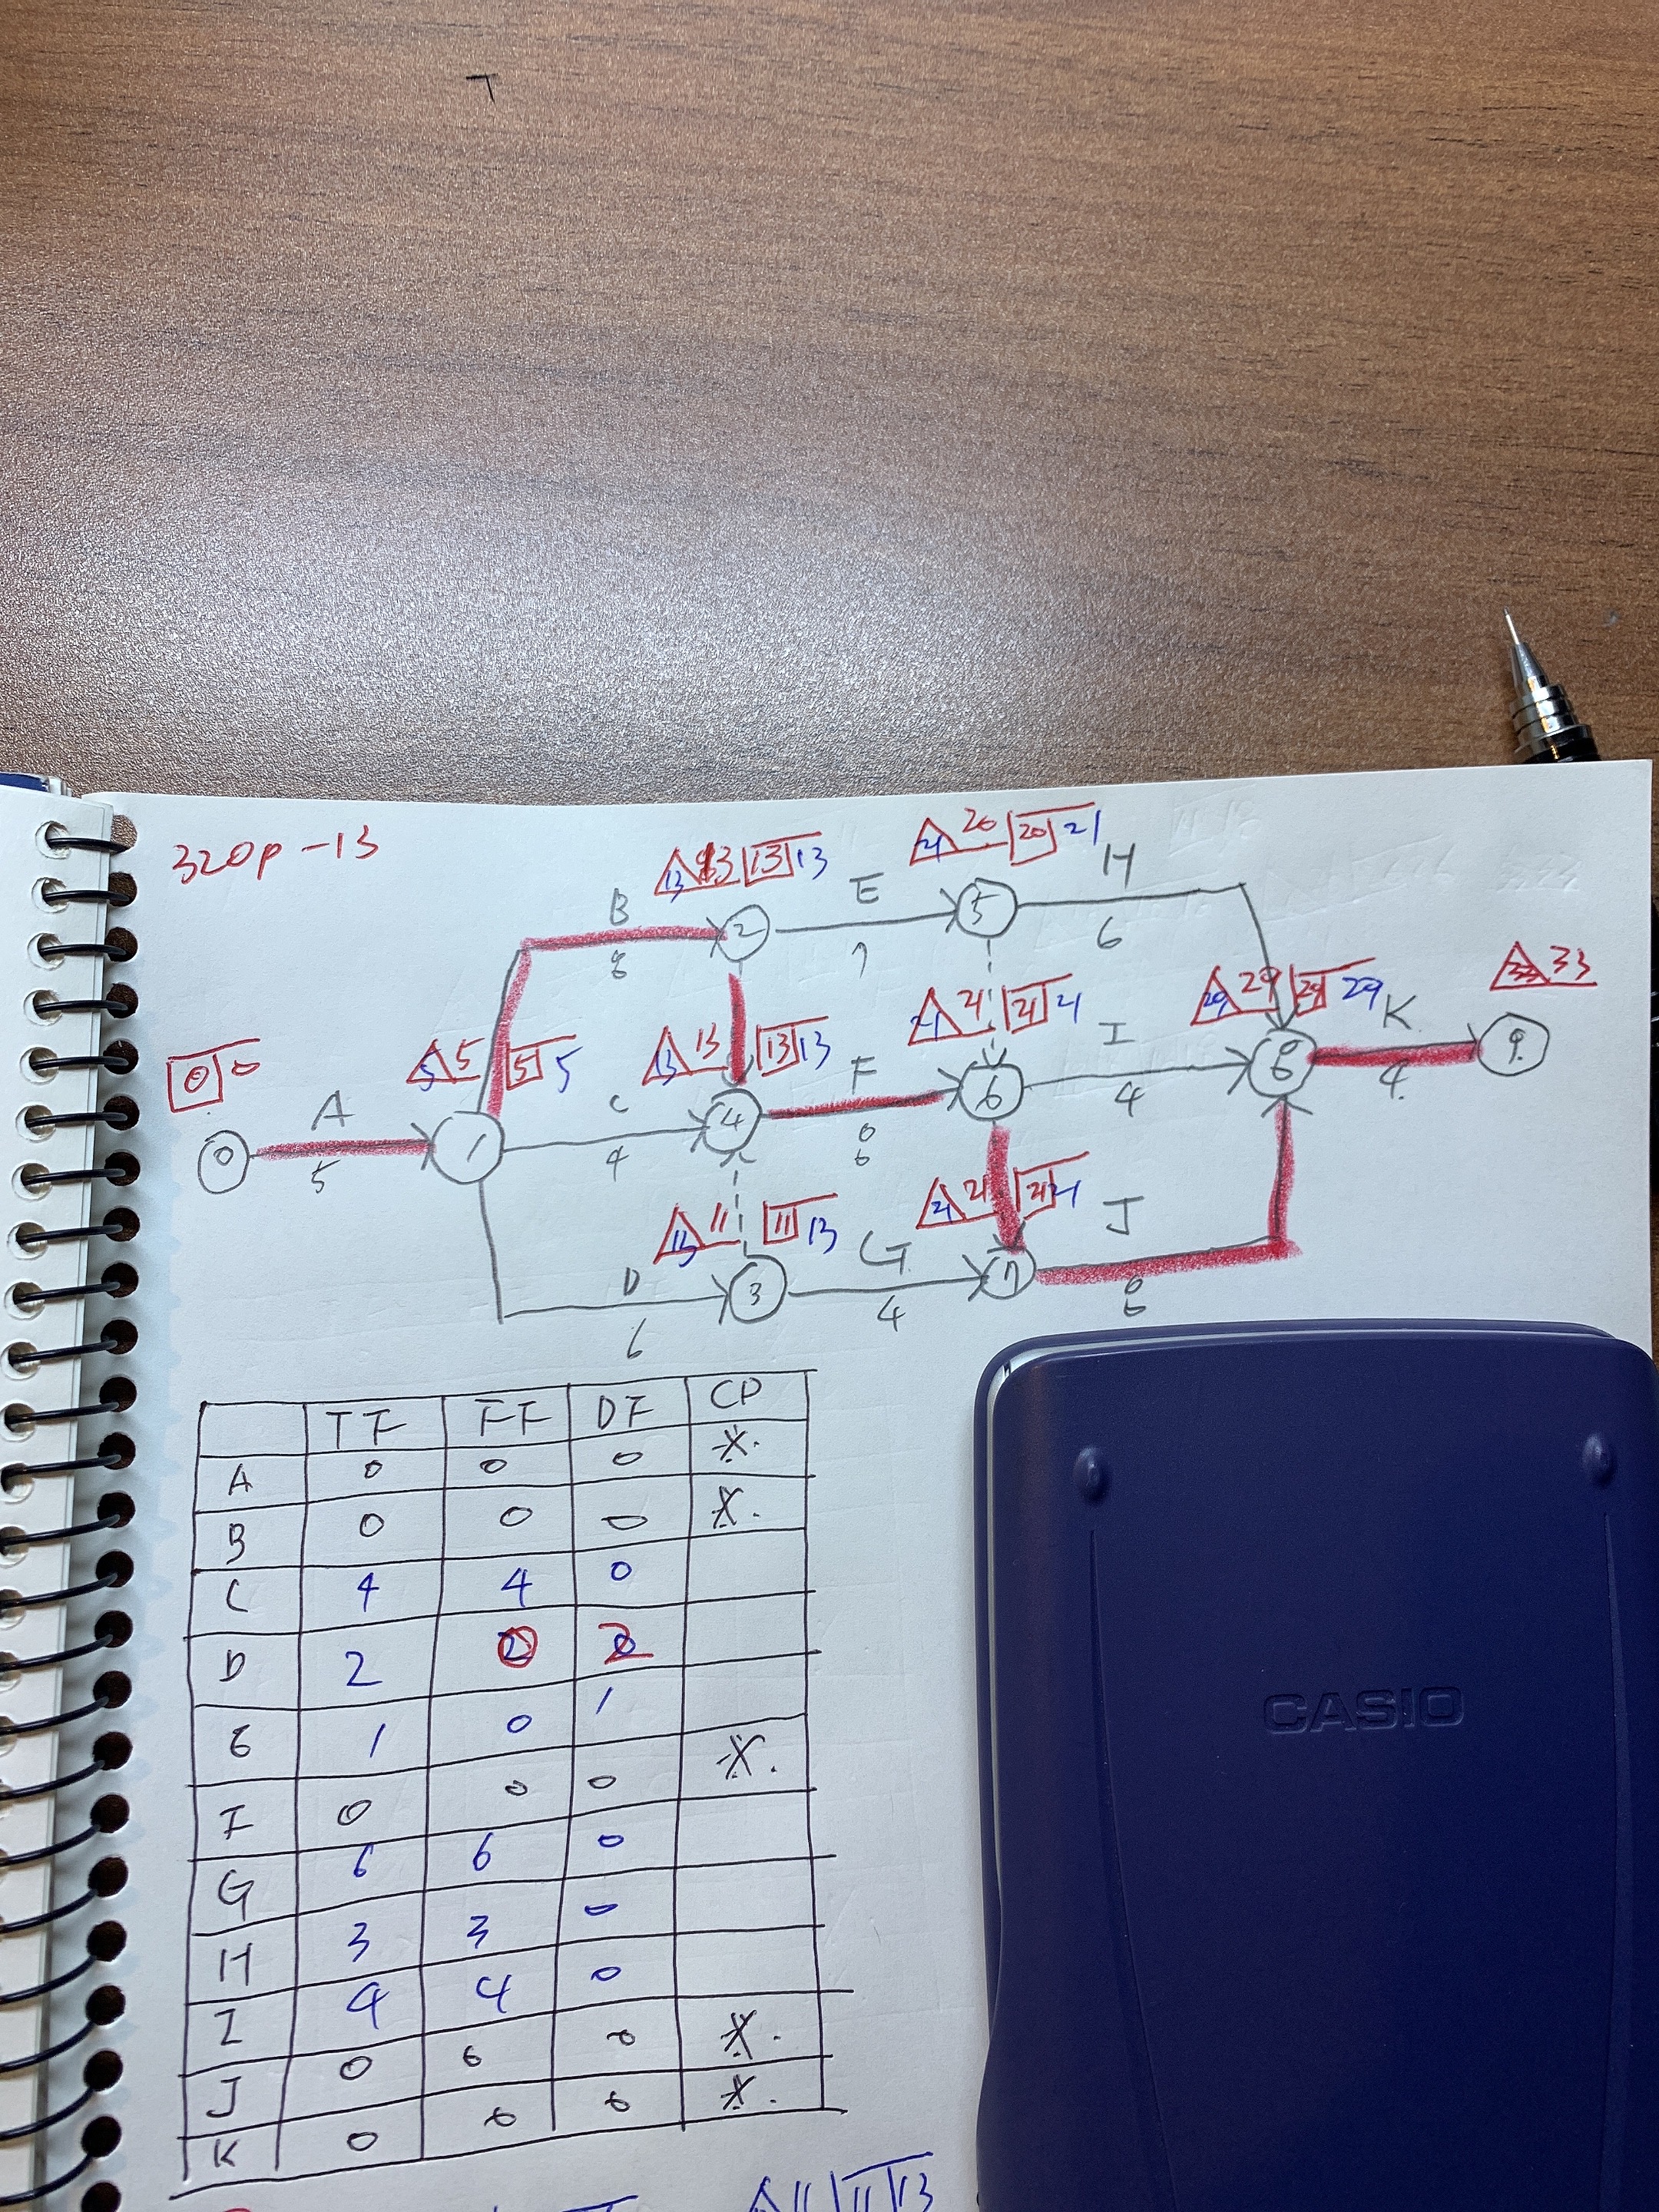 320p-13
13 13 13 13
20 20 21
B
E
H
8
7
6
2
5
5 5 5 5
13 13 13 13
21 21 21 21
29 29 29 29
33
0 0
A
C
F
I
K
0
1
4
6
8
9
5
4
8
4
4
11 11 13
21 21 21
D
G
J
3
7
6
4
8
TF FF DF CP
A 0 0 0 ※
B 0 0 0 ※
C 4 4 0
D 2 0 2
E 1 0 1
F 0 0 0 ※
G 6 6 0
H 3 3 0
I 4 4 0
J 0 0 0 ※
K 0 0 0 ※
11 11 13
CASIO